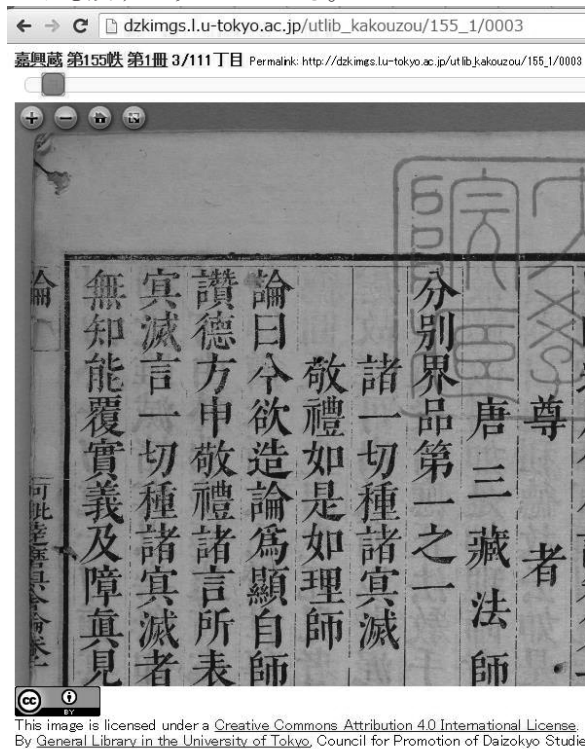 dzkimgs.l.u-tokyo.ac.jp/utlib_kakouzou/155_1/0003
嘉興蔵 第155帙 第1冊 3/111丁目 Permalink: http://dzkimgs.l.u-tokyo.ac.jp/utlib_kakouzou/155_1/0003
尊者
唐三藏法師
分別界品第一之一
諸一切種諸㝠滅
敬禮如是如理師
論曰今欲造論爲顯自師
讚德方申敬禮諸言所表
㝠滅言一切種諸㝠滅者
無知能覆實義及障眞見
論
cc BY
This image is licensed under a Creative Commons Attribution 4.0 International License.
By General Library in the University of Tokyo, Council for Promotion of Daizokyo Studi